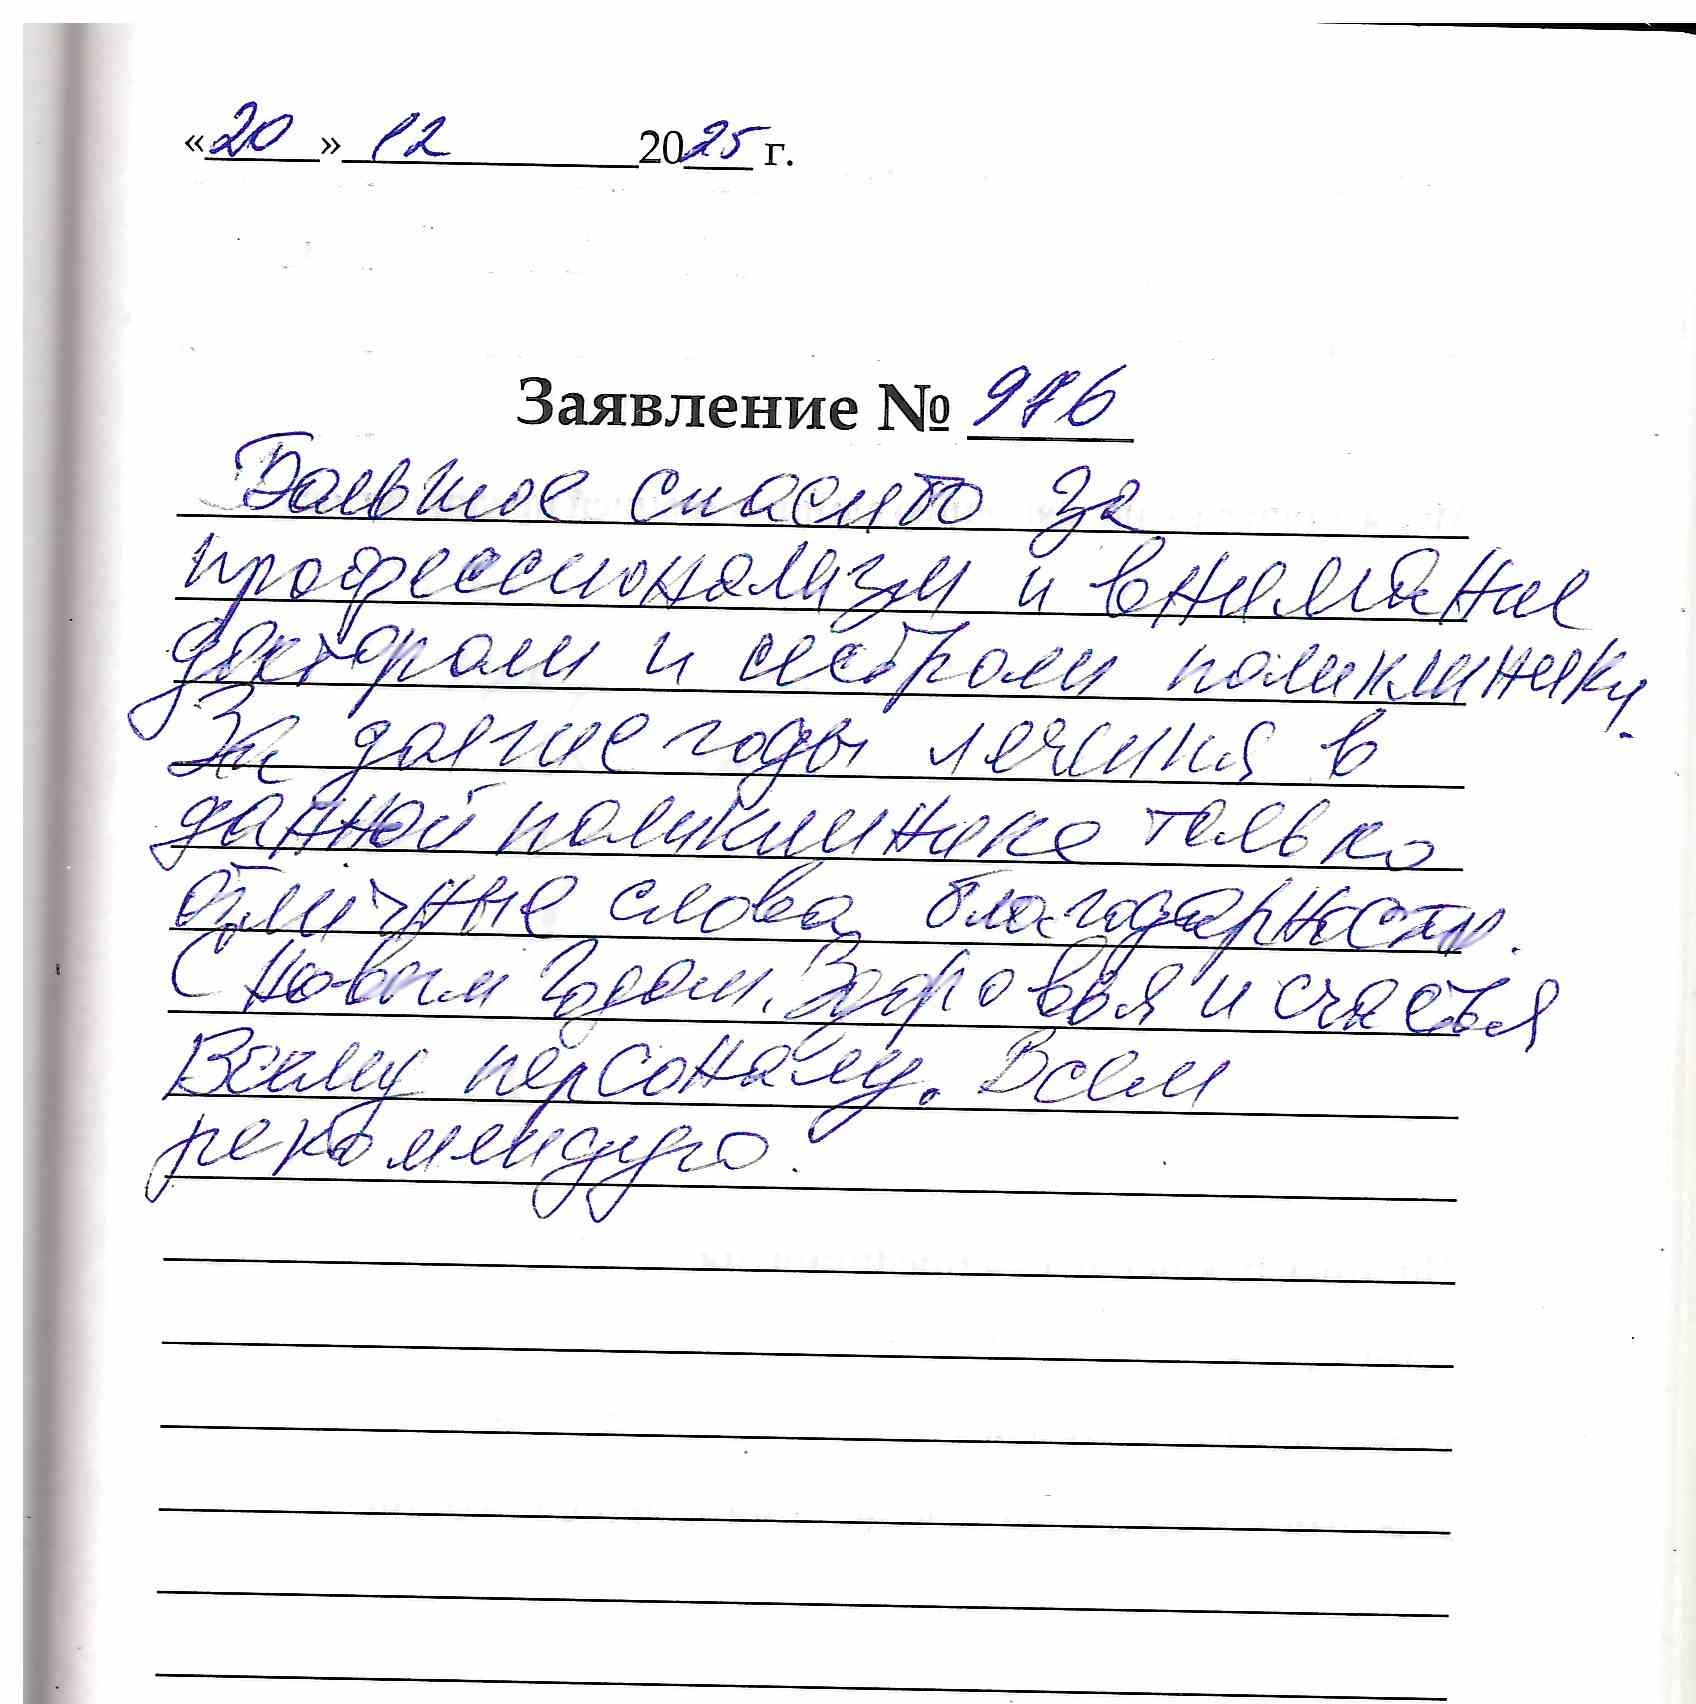 «20» 12 2025 г.
Заявление № 986
Большое спасибо за
профессионализм и внимание
докторам и сестрам поликлиники.
За долгие годы лечения в
данной поликлинике только
отличные слова благодарности.
С новым годом. Здоровья и счастья
Всему персоналу. Всем
рекомендую.